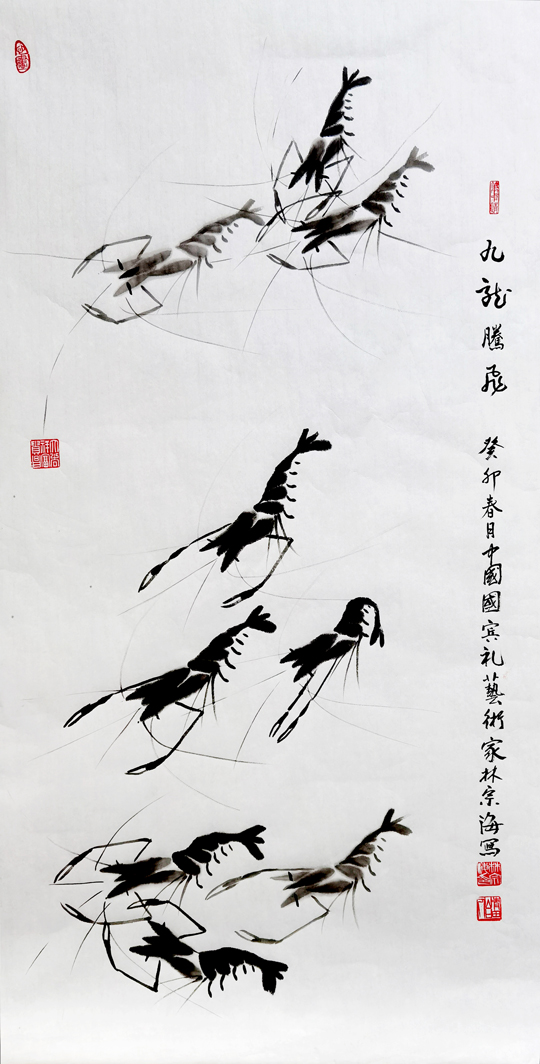 九龍騰飛
癸卯春月中國國宾礼藝術家林宗海寫